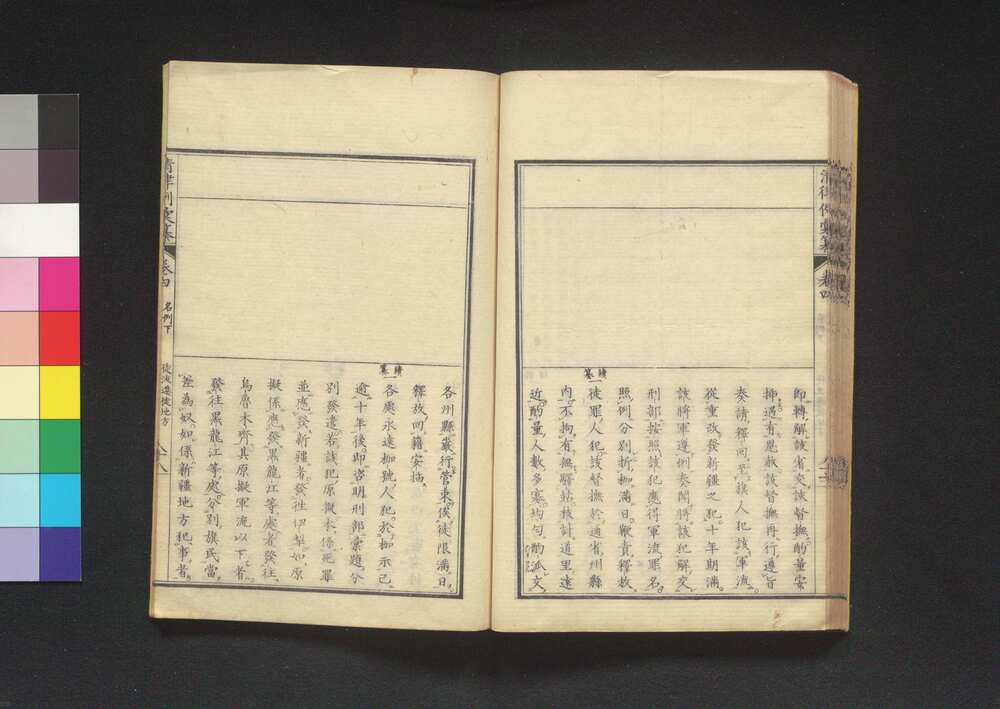 清律例彙纂
卷四
即轉解該省交該督撫酌量安
插遇有恩赦該督撫再行遵旨
奏請釋回至旗人犯該軍流
從重改發新疆之犯十年期滿
該將軍遵例奏聞將該犯解交
刑部按照該犯應得軍流罪名
照例分別折枷滿日鞭責釋放
續纂
一徒罪人犯該督撫於通省州縣
内不拘有無驛站核計道里遠
近酌量人數多寡均勻酌派文
各州縣嚴行管束俟徒限滿日
釋放回籍安插
續纂
一各處永遠枷號人犯於枷示已
逾十年後即咨明刑部彙題分
別發遣若該犯原擬本係死罪
並應發新疆者發往伊犁如原
擬係應發黑龍江等處者發往
烏魯木齊其原擬軍流以下者
發往黑龍江等處分別旗民當
差為奴如係新疆地方犯事者
清律例彙纂
卷四
名例下
徒流遷徙地方